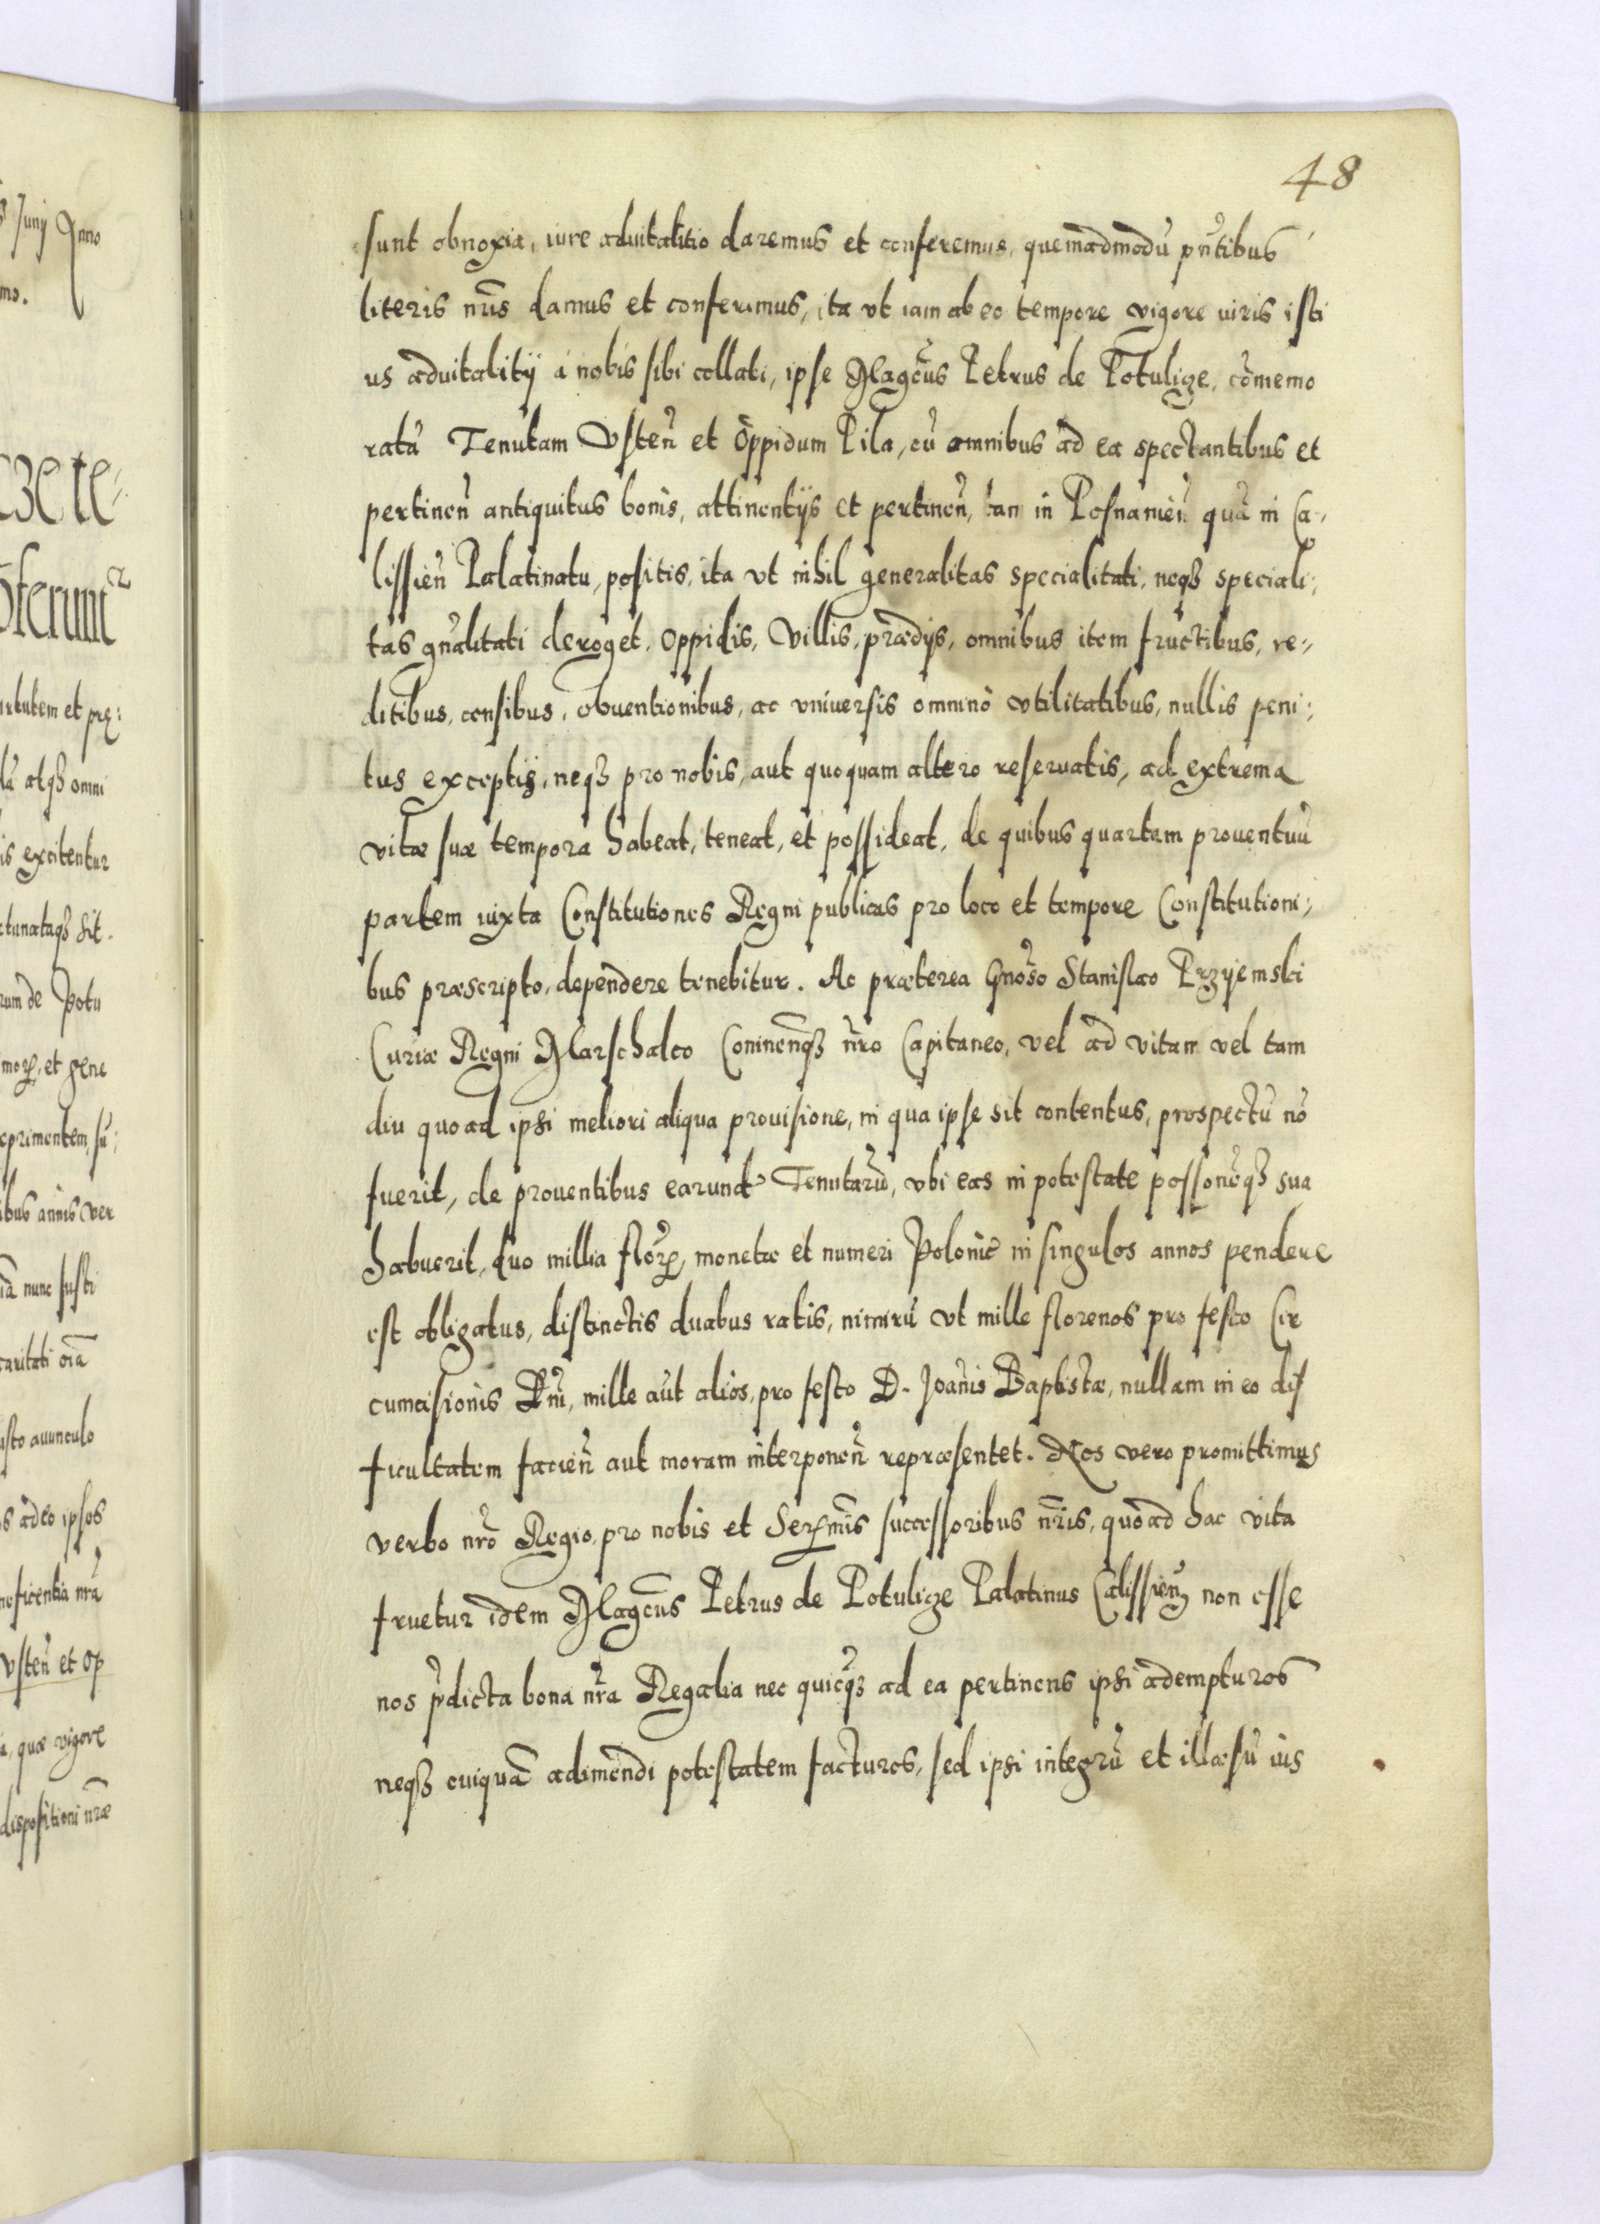 48
sunt obnoxia, iure aduitalitio daremus et conferemus, quemadmodũ pñtibus
literis nr̃is damus et conferimus, ita vt iam ab eo tempore vigore iuris isti
us aduitalitij á nobis sibi collati, ipse Magc̃us Petrus de Potulize, cõmemo
ratã Tenutam Vsteñ et Oppidum Pila, cũ omnibus ad ea spectantibus et
pertineñ antiquitus bonis, attinentijs et pertineñ, tam in Posnanieñ quã in Ca-
lissieñ Palatinatu, positis, ita vt nihil generalitas specialitati, neqȝ speciali-
tas gñalitati deroget, Oppidis, Villis, prædijs, omnibus item fructibus, re-
ditibus, censibus, obuentionibus, ac vniuersis omninò vtilitatibus, nullis peni-
tus exceptis, neqȝ pro nobis, aut quoquam altero reseruatis, ad extrema
vitæ suæ tempora habeat, teneat, et possideat, de quibus quartam prouentuũ
partem iuxta Constitutiones Regni publicas pro loco et tempore Constitutioni-
bus præscripto, dependere tenebitur. Ac præterea Gnõso Stanislao Przyiemski
Curiæ Regni Marschalco Coninenqȝ nr̃o Capitaneo, vel ad vitam vel tam
diu quoad ipsi meliori aliqua prouisione, in qua ipse sit contentus, prospectũ nõ
fuerit, de prouentibus earund Tenutarũ, vbi eas in potestate possoneqȝ sua
habuerit, duo millia florꝝ, monetæ et numeri Polonic̃ in singulos annos pendere
est obligatus, distinctis duabus ratis, nimirũ vt mille florenos pro festo Cir
cumcisionis Dñi, mille aut alios, pro festo D. Joañis Baptistæ, nullam in eo dif
ficultatem facieñ aut moram interponeñ repræsentet. Nos vero promittimus
verbo nr̃o Regio, pro nobis et Serꝰmis successoribus nr̃is, quoad hac vita
fruetur idem Magc̃us Petrus de Potulize Palatinus Calissieñ, non esse
nos p̃dicta bona nr̃a Regalia nec quicqȝ ad ea pertinens ipsi adempturos
neqȝ cuiquã adimendi potestatem facturos, sed ipsi integrũ et illæsũ ius